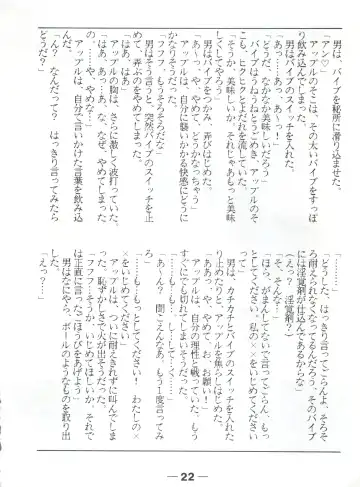 男は、バイブを秘所に滑り込ませた。
「アン♡」
アップルのそこは、その太いバイブをすっぽ
り飲み込んでしまった。
男はバイブのスイッチを入れた。
「あっ…あ、あっ…」
「どうだ、なかなか美味しいだろう」
バイブはうねうねとうごめき、アップルのそ
こも、ヒクヒクとよだれを流していた。
「そうか、美味しいか、それじゃあもっと美味
しくしてやろう」
男はバイブをつかみ、弄びはじめた。
「あ～っ、やめて、どうかなっちゃう」
アップルは、自分に襲いかかる快感にどうに
かなりそうだった。
「フフフ、もうそろそろだな」
男はそう言うと、突然バイブのスイッチを止
めて、弄ぶのをやめてしまった。
「はあ、はあ」
アップルの胸は、さらに激しく波打っていた。
「は、あっ…あ、な、なぜ、やめてしまった
の、……や、やめな…」
アップルは、自分で言いかけた言葉を飲み込
んだ。
「ん？　なんだって？　はっきり言ってみたら
どうだ？」
「………」
「どうした、はっきり言ってごらんよ、そろそ
ろ耐えられなくなってるんだろう、そのバイブ
には淫覚剤が仕込んであるからな」
（えっ？　淫覚剤？）
「そ、そんな…」
「ほら、がまんしてないで言ってごらん、もっ
としてください、私の××をいじめてください」
男は、カチカチとバイブのスイッチを入れた
り止めたりと、アップルを焦らしはじめた。
「ああっ、や、やめて、お、お願い！」
アップルは、自分の理性と戦っていた、もう
すぐにでも切れてしまいそうだった。
「…も…もっと…し……して……」
「あ～ん？　聞こえんなあ、もう１度言ってみ
ろ」
「……も…もっとしてください！　わたしの×
をいじめてください」
アップルは、ついに耐えきれずに叫んでしま
った、恥ずかしさで火が出そうだった。
「フフフ…そうか、いじめてほしいか、それで
は正直に言ったごほうびをあげよう」
男はなにやら、ボールのようなものを取り出
した。
「えっ？…」
― 22 ―